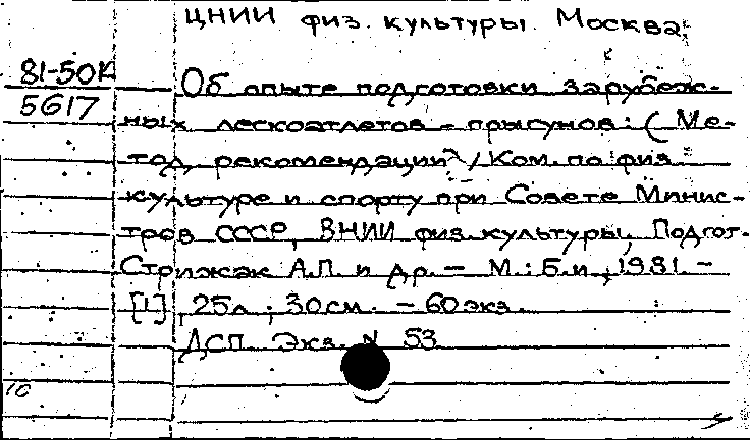 ЦНИИ физ. культуры. Москва
81-50К
5617
Об опыте подготовки зарубеж-
ных легкоатлетов - прыгунов: (Ме-
тод. рекомендации) / Ком. по физ.
культуре и спорту при Совете Минис-
тров СССР, ВНИИ физ. культуры; Подгот.
Стрижак А.П. и др. — М.: Б.и., 1981. -
[1], 25л.; 30см. - 60экз.
ДСП. Экз. N 53
10